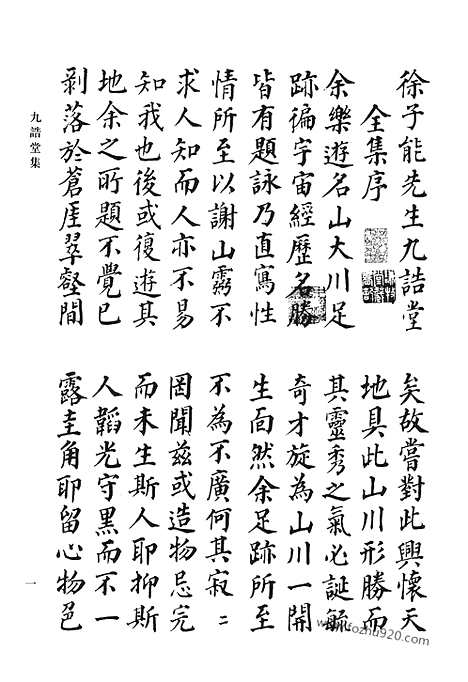 徐子能先生九誥堂
全集序
余樂遊名山大川足
跡徧宇宙經歷名勝
皆有題詠乃直寫性
情所至以謝山靈不
求人知而人亦不易
知我也後或復遊其
地余之所題不覺已
剥落於蒼崖翠壑間
矣故嘗對此興懷天
地具此山川形勝而
其靈秀之氣必誕毓
奇才旋為山川一開
生面然余足跡所至
不為不廣何其寂〻
罔聞兹或造物忌完
而未生斯人耶抑斯
人韜光守黑而不一
露圭角耶留心物色
九誥堂集
一
www.fozhu920.com